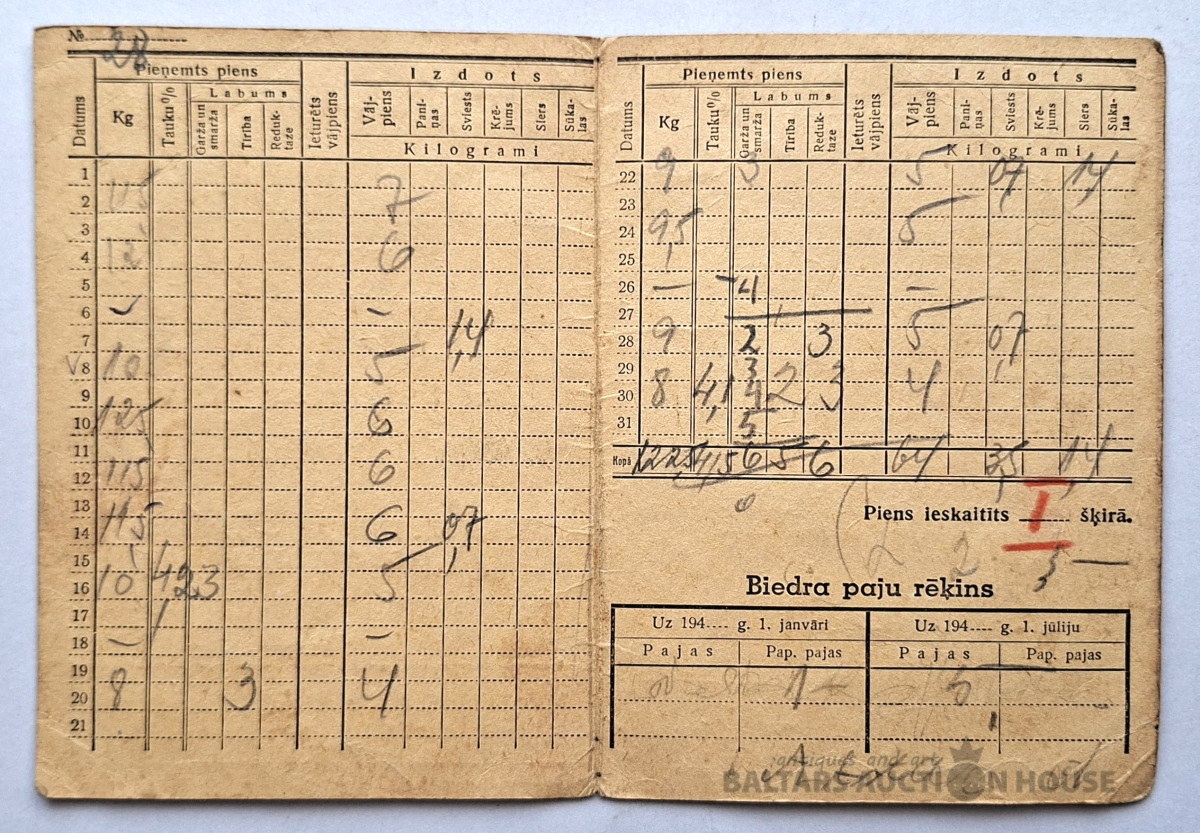 № 28
Pieņemts piens Izdots
Datums Kg Tauku % Labums Garža un smarža Tīrība Reduktaze Ieturēts vājpiens Vājpiens Paniņas Sviests Krējums Siers Sūkalas
Kilogrami
1
2 7
3
4 12 6
5
6 - -
7 1,4
8 10 5
9
10 12,5 6
11
12 11,5 6
13
14 11,5 6 0,7
15
16 10 4,2 3 5
17
18 - -
19
20 8 3 4
21
Pieņemts piens Izdots
Datums Kg Tauku % Labums Garža un smarža Tīrība Reduktaze Ieturēts vājpiens Vājpiens Paniņas Sviests Krējums Siers Sūkalas
Kilogrami
22 9 3 5 0,7 1,4
23
24 9,5 5
25
26 - 4 -
27
28 9 2 3 5 0,7
29 3
30 8 4,1 4 2 3 4
31 5
Kopā 122,5 41,5 6 5 6 64 3,5 1,4
Piens ieskaitīts I šķirā.
2 2 3 —
Biedra paju rēķins
Uz 194 g. 1. janvāri Uz 194 g. 1. jūliju
Pajas Pap. pajas Pajas Pap. pajas
1 - 5
antiques and art
BALTARS AUCTION HOUSE